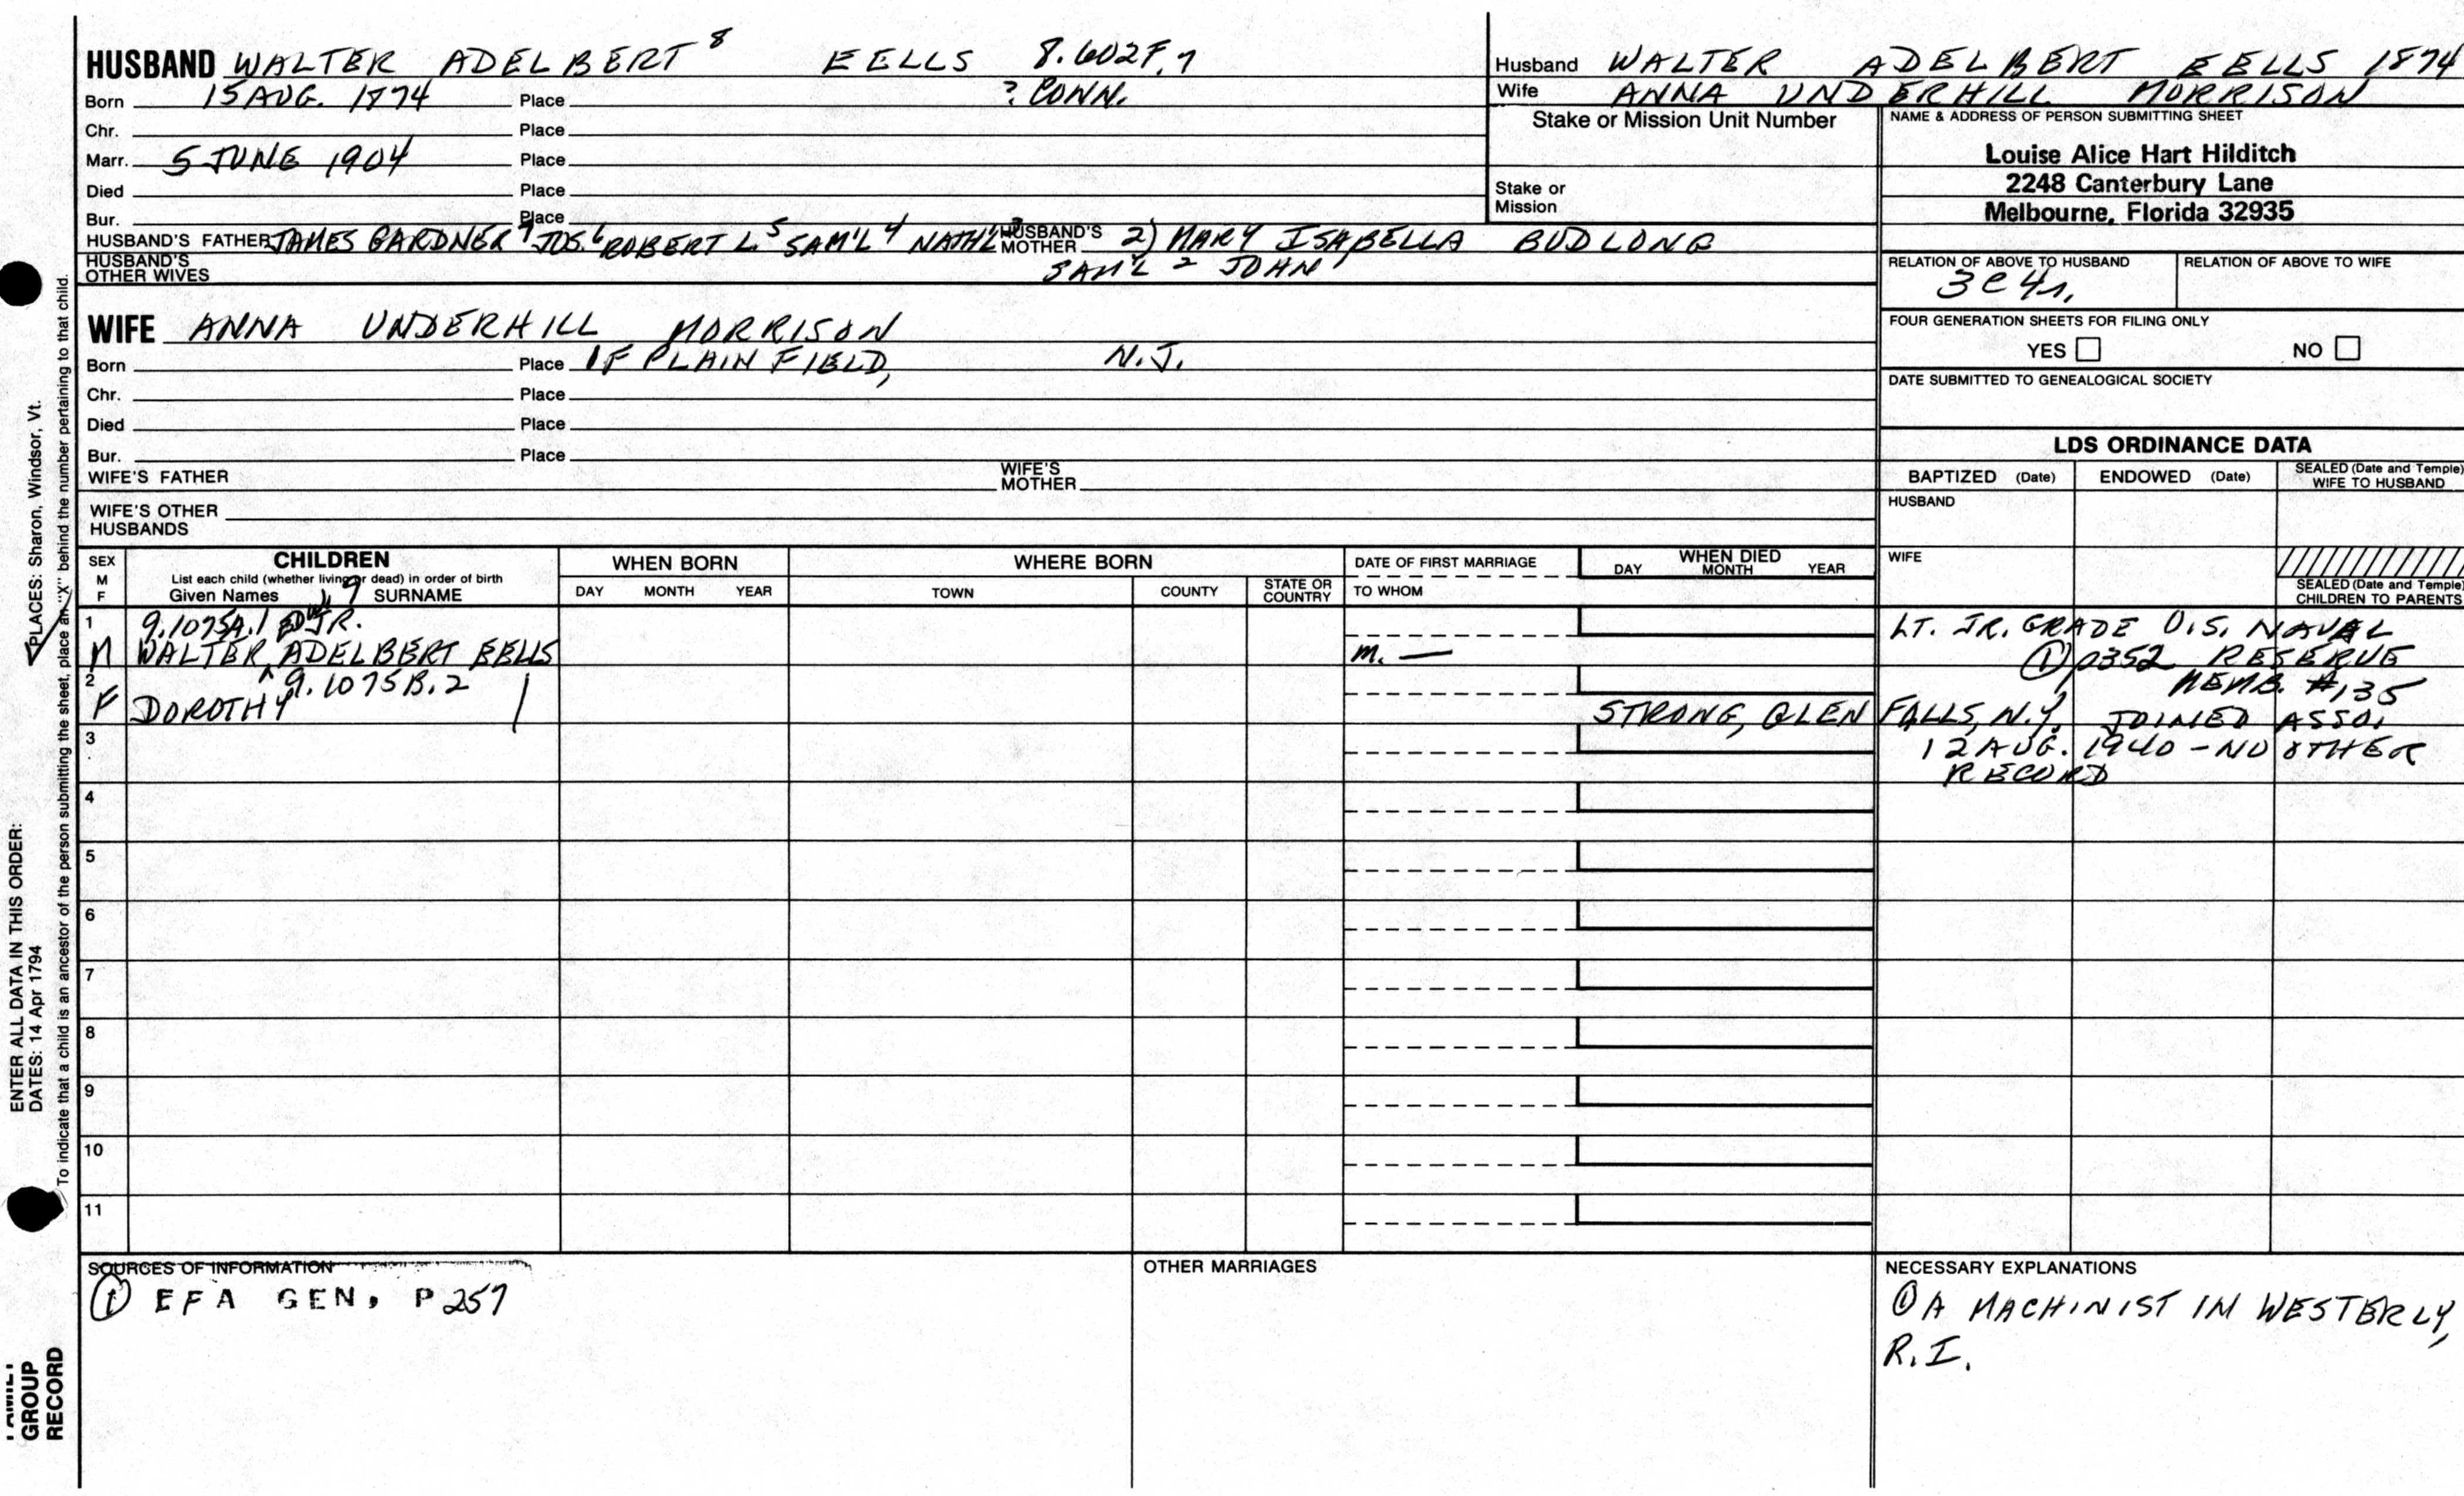 HUSBAND WALTER ADELBERT 8 EELLS 8.602F.7
Born 15 AUG. 1874 Place ? CONN.
Chr. Place
Marr. 5 JUNE 1904 Place
Died Place
Bur. Place
HUSBAND'S FATHER JAMES GARDNER 7 JOS. 6 ROBERT L. 5 SAM'L 4 NATH'L 3 HUSBAND'S MOTHER 2) MARY ISABELLA BUDLONG
HUSBAND'S OTHER WIVES SAM'L 2 JOHN 1
WIFE ANNA UNDERHILL MORRISON
Born Place OF PLAINFIELD, N.J.
Chr. Place
Died Place
Bur. Place
WIFE'S FATHER WIFE'S MOTHER
WIFE'S OTHER HUSBANDS
Husband WALTER ADELBERT EELLS 1874
Wife ANNA UNDERHILL MORRISON
Stake or Mission Unit Number
Stake or Mission
NAME & ADDRESS OF PERSON SUBMITTING SHEET
Louise Alice Hart Hilditch
2248 Canterbury Lane
Melbourne, Florida 32935
RELATION OF ABOVE TO HUSBAND RELATION OF ABOVE TO WIFE
3C4r.
FOUR GENERATION SHEETS FOR FILING ONLY
YES NO
DATE SUBMITTED TO GENEALOGICAL SOCIETY
LDS ORDINANCE DATA
BAPTIZED (Date) ENDOWED (Date) SEALED (Date and Temple) WIFE TO HUSBAND
HUSBAND
WIFE
SEALED (Date and Temple) CHILDREN TO PARENTS
SEX M F
CHILDREN
List each child (whether living or dead) in order of birth
Given Names SURNAME
WHEN BORN
DAY MONTH YEAR
WHERE BORN
TOWN COUNTY STATE OR COUNTRY
DATE OF FIRST MARRIAGE
TO WHOM
WHEN DIED
DAY MONTH YEAR
1 9.1075A.1 JR. LT. JR. GRADE U.S. NAVAL
M WALTER ADELBERT EELLS m. — ① 0352 RESERVE
2 9.1075B.2 MEMB. #135
F DOROTHY STRONG, GLEN FALLS, N.Y. JOINED ASSO.
3 12 AUG. 1940 - NO OTHER
RECORD
4
5
6
7
8
9
10
11
SOURCES OF INFORMATION
① EFA GEN, P 257
OTHER MARRIAGES
NECESSARY EXPLANATIONS
① A MACHINIST IN WESTERLY,
R.I.
ENTER ALL DATA IN THIS ORDER:
DATES: 14 Apr 1794
PLACES: Sharon, Windsor, Vt.
To indicate that a child is an ancestor of the person submitting the sheet, place an "X" behind the number pertaining to that child.
FAMILY
GROUP
RECORD